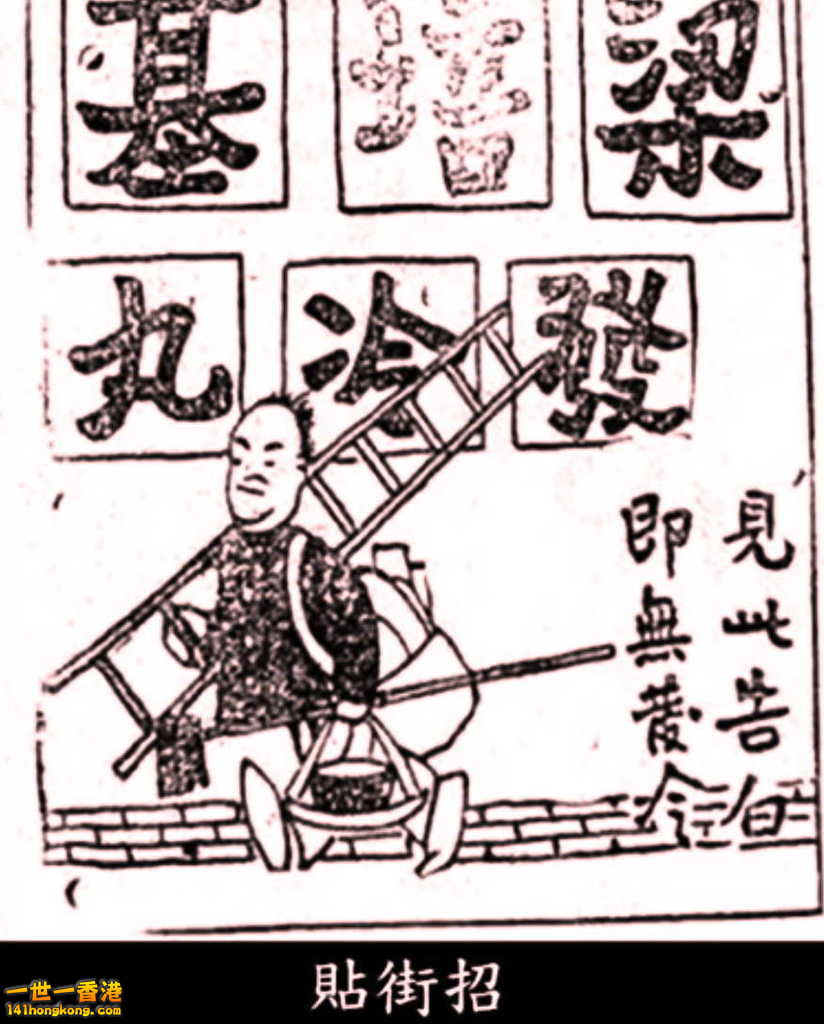 梁培基
發冷丸
見此告白
即無發冷
貼街招
一世一香港
141hongkong.com